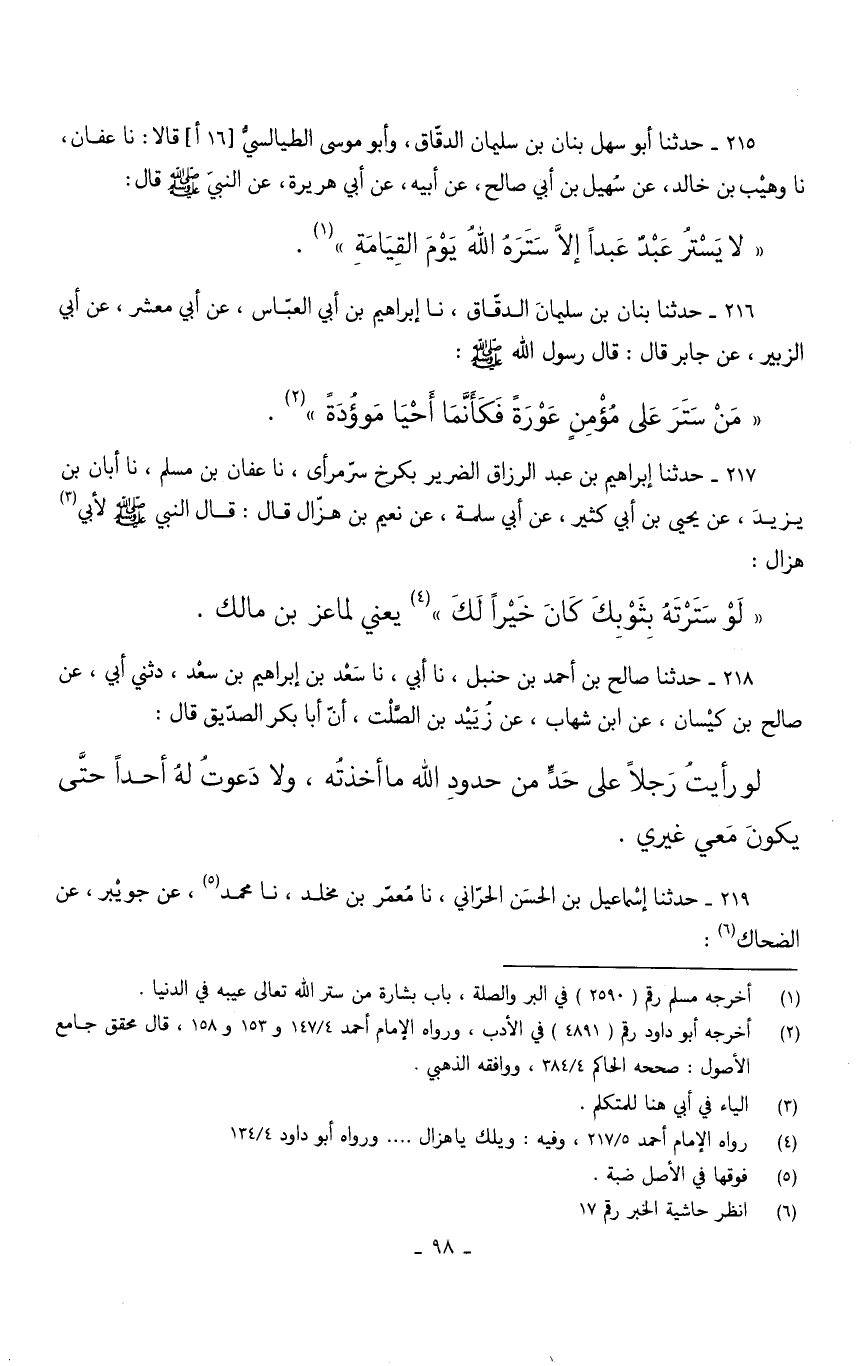 ٢١٥ ـ حدثنا أبو سهل بنان بن سليمان الدقّاق، وأبو موسى الطيالسيُّ [١٦ أ] قالا: نا عفـان،
نا وهيْب بن خالد، عن سُهيل بن أبي صالح، عن أبيه، عن أبي هريرة، عن النبيّ ﷺ قال:
« لا يَسْترُ عَبْدٌ عَبداً إلاَّ سَتَرَهُ اللهُ يَوْمَ القِيَامَةِ »(١) .
٢١٦ ـ حدثنا بنان بن سليمانَ الـدقّـاق ، نـا إبراهيم بن أبي العبّـاس ، عن أبي معشر ، عن أبي
الزبير ، عن جابر قال : قال رسول الله ﷺ :
« مَنْ سَتَرَ عَلى مُؤْمِنٍ عَوْرَةً فَكَأَنَّمَا أَحْيَا مَوؤُدَةً »(٢) .
٢١٧ ـ حدثنا إبراهيم بن عبد الرزاق الضرير بكرخ سرّمرأى ، نا عفان بن مسلم ، نا أبان بن
يـزيـدَ ، عن يحيى بن أبي كثير ، عن أبي سلمـة ، عن نعيم بن هـزّال قـال : قـال النبي ﷺ لأبي(٣)
هزال :
« لَوْ سَتَرْتَهُ بِثَوْبِكَ كَانَ خَيْراً لَكَ »(٤) يعني لماعز بن مالك .
٢١٨ ـ حدثنا صالح بن أحمد بن حنبل ، نا أبي ، نا سَعْد بن إبراهيم بن سعْد ، دثني أبي ، عن
صالح بن كيْسان ، عن ابن شهاب ، عن زُيَيْد بن الصَّلْت ، أنّ أبا بكر الصدّيق قال :
لو رأيتُ رَجلاً على حَدٍّ من حدودِ الله ماأخذتُه ، ولا دَعوتُ لهُ أحـداً حتَّى
يكونَ مَعي غيري .
٢١٩ ـ حدثنا إسْماعيل بن الحسَن الحرّاني ، نا مُعمّر بن مخلـد ، نـا محمـد(٥) ، عن جويْبر ، عن
الضحاك(٦) :
(١) أخرجه مسلم رقم ( ٢٥٩٠ ) في البر والصلة ، باب بشارة من ستر الله تعالى عيبه في الدنيا .
(٢) أخرجه أبو داود رقم ( ٤٨٩١ ) في الأدب ، ورواه الإمام أحمد ١٤٧/٤ و ١٥٣ و ١٥٨ ، قال محقق جـامع
الأصول : صححه الحاكم ٣٨٤/٤ ، ووافقه الذهبي .
(٣) الياء في أبي هنا للمتكلم .
(٤) رواه الإمام أحمد ٢١٧/٥ ، وفيه : ويلك ياهزال .... ورواه أبو داود ١٣٤/٤
(٥) فوقها في الأصل ضبة .
(٦) انظر حاشية الخبر رقم ١٧
ـ ٩٨ ـ